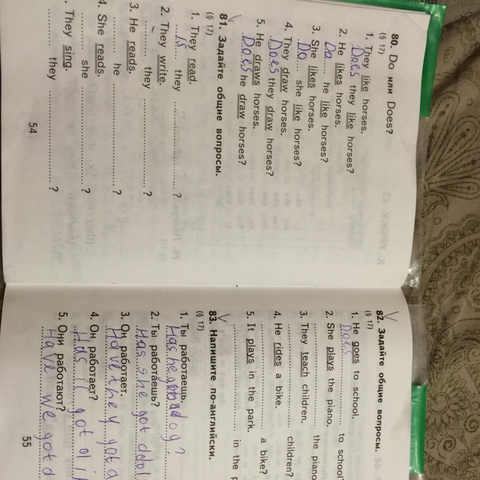 80. Do или Does?
(§ 17)
1. They like horses.
Does they like horses?
2. He likes horses.
Do he like horses?
3. She likes horses.
Do she like horses?
4. They draw horses.
Does they draw horses?
5. He draws horses.
Does he draw horses?
81. Задайте общие вопросы.
(§ 17)
1. They read.
Is they ?
2. They write.
they ?
3. He reads.
he ?
4. She reads.
she ?
They sing.
they ?
54
82. Задайте общие вопросы.
(§ 17)
1. He goes to school.
Does to school?
2. She plays the piano.
the piano
3. They teach children.
children?
4. He rides a bike.
a bike?
5. It plays in the park.
in the
83. Напишите по-английски.
(§ 17)
1. Ты работаешь.
Has he got a dog?
2. Ты работаешь?
Has she got
3. Он работает.
Have they got a
4. Он работает?
Has got a
5. Они работают?
Have we got
55